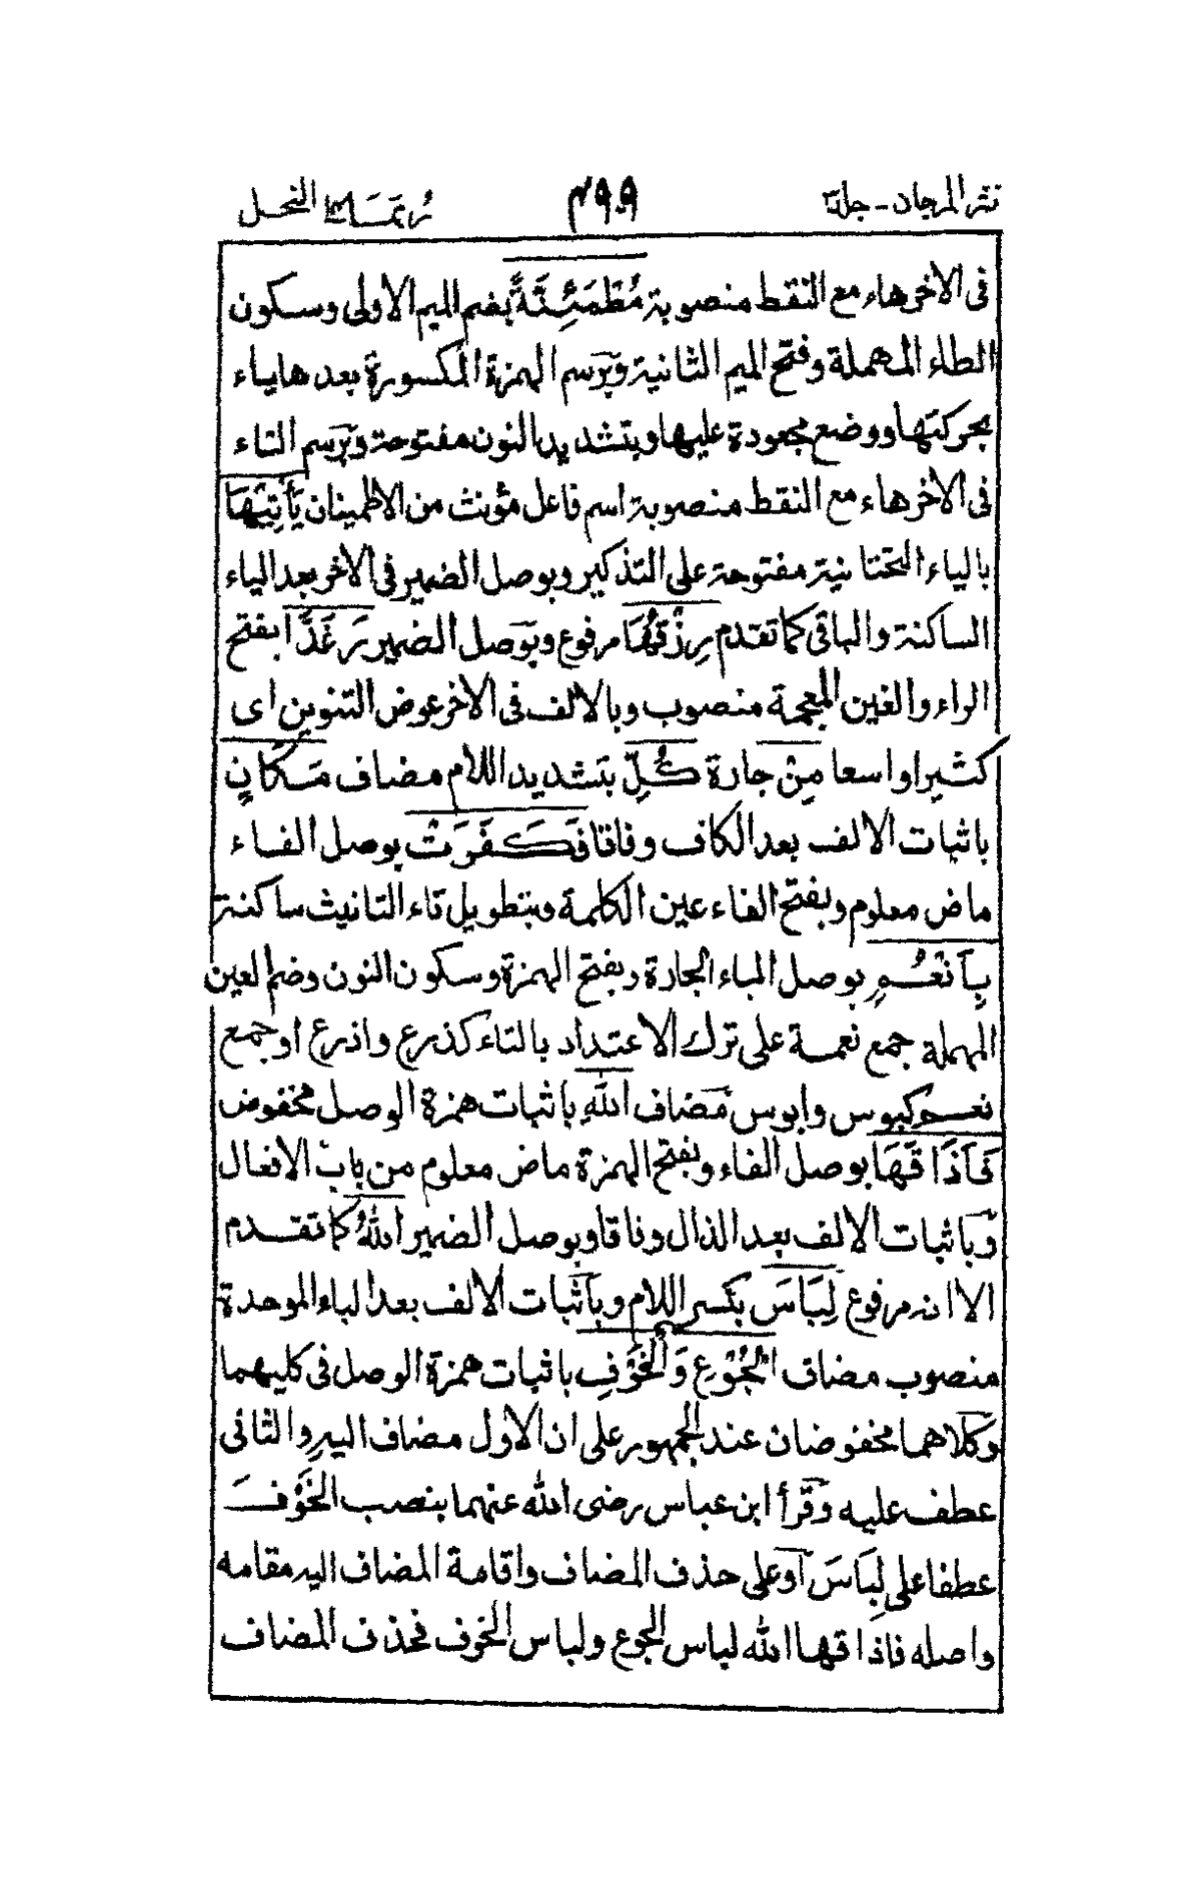 نثر المرجان - جلد ٤٩٩ ربما النحل
فى الاخر هاء مع النقط منصوبة مُطْمَئِنَّةً بضم الميم الاولى وسكون
الطاء المهملة وفتح الميم الثانية وبرسم الهمزة المكسورة بعدها ياء
بحركتها ووضع مجعودة عليها وبتشديد النون مفتوحة وبرسم التاء
فى الاخر هاء مع النقط منصوبة اسم فاعل مؤنث من الاطمينان يَأْتِيْهَا
بالياء التحتانية مفتوحة على التذكير وبوصل الضمير فى الاخر بعد الياء
الساكنة والباقى كما تقدم رِزْقُهَا مرفوع وبوصل الضمير رَغَدًا بفتح
الراء والغين المعجمة منصوب وبالالف فى الاخر عوض التنوين اى
كثيرا واسعا مِنْ جارة كُلِّ بتشديد اللام مضاف مَكَانٍ
باثبات الالف بعد الكاف وفاقا فَكَفَرَتْ بوصل الفاء
ماض معلوم وبفتح الفاء عين الكلمة وبتطويل تاء التانيث ساكنة
بِأَنْعُمِ بوصل الباء الجارة وبفتح الهمزة وسكون النون وضم العين
المهملة جمع نعمة على ترك الاعتداد بالتاء كذرع واذرع اوجمع
نعم كبوس وابوس مضاف اللهِ باثبات همزة الوصل مخفوض
فَأَذَاقَهَا بوصل الفاء وبفتح الهمزة ماض معلوم من باب الافعال
وباثبات الالف بعد الذال وفاقا وبوصل الضمير اللهُ كما تقدم
الا انه مرفوع لِبَاسَ بكسر اللام وباثبات الالف بعد الباء الموحدة
منصوب مضاف الْجُوْعِ وَالْخَوْفِ باثبات همزة الوصل فى كليهما
وكلاهما مخفوضان عند الجمهور على ان الاول مضاف اليه والثانى
عطف عليه وقرأ ابن عباس رضى الله عنهما بنصب الخَوْفَ
عطفا على لِبَاسَ اوعلى حذف المضاف واقامة المضاف اليه مقامه
واصله فاذاقها الله لباس الجوع ولباس الخوف فحذف المضاف